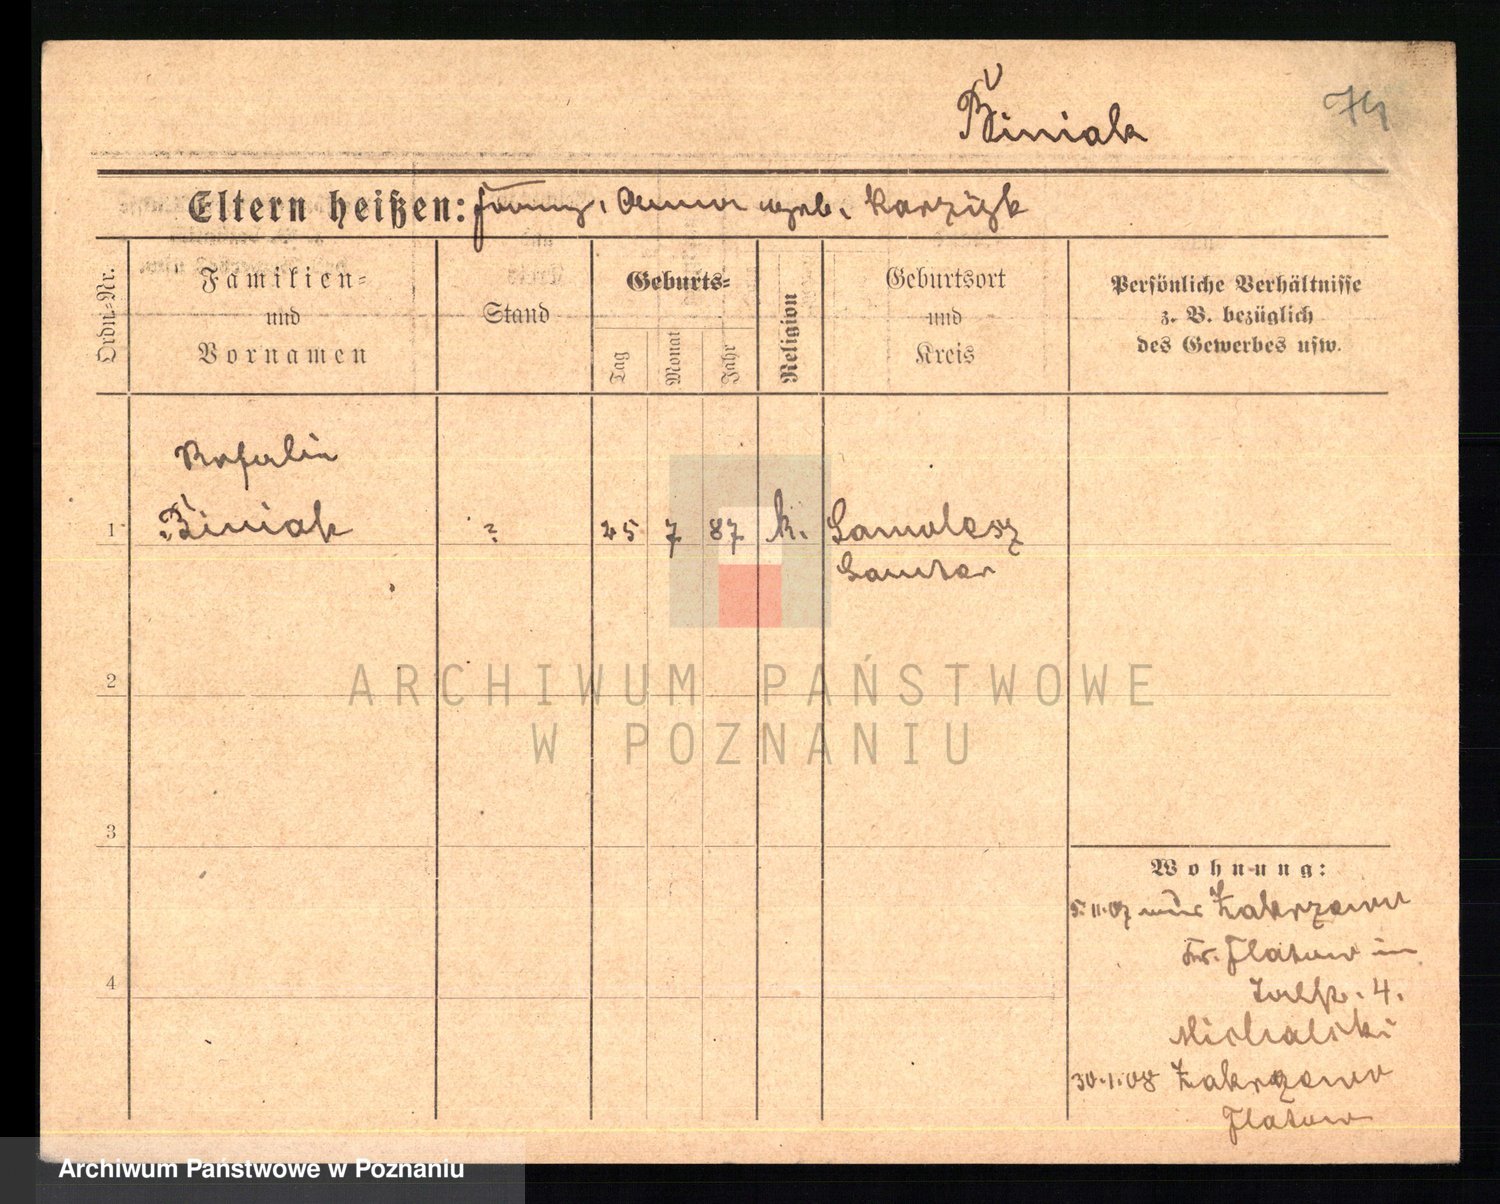 Biniak
74
Eltern heißen: Franz, Anna geb. Karzizk
Ordn.-Nr.
Familien-
und
Vornamen
Stand
Geburts-
Tag
Monat
Jahr
Religion
Geburtsort
und
Kreis
Persönliche Verhältnisse
z. B. bezüglich
des Gewerbes usw.
Rosalie
1 Biniak ? 25 7 87 k. Samolesz
Samter
2
3
4
Wohnung:
5.11.07 aus Zakrzewo
Kr. Flatow in
4.
Michalski
30.1.08 Zakrzewo
Flatow
ARCHIWUM PAŃSTWOWE
W POZNANIU
Archiwum Państwowe w Poznaniu